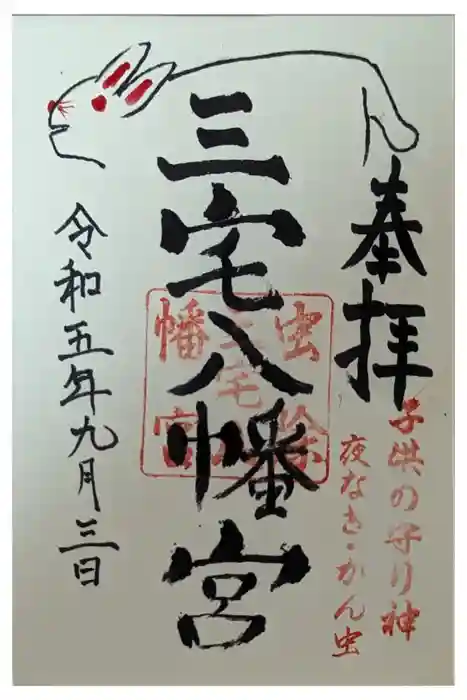 奉拝
子供の守り神
夜なき・かん虫
三宅八幡宮
虫除
三宅
幡宮
令和五年九月三日